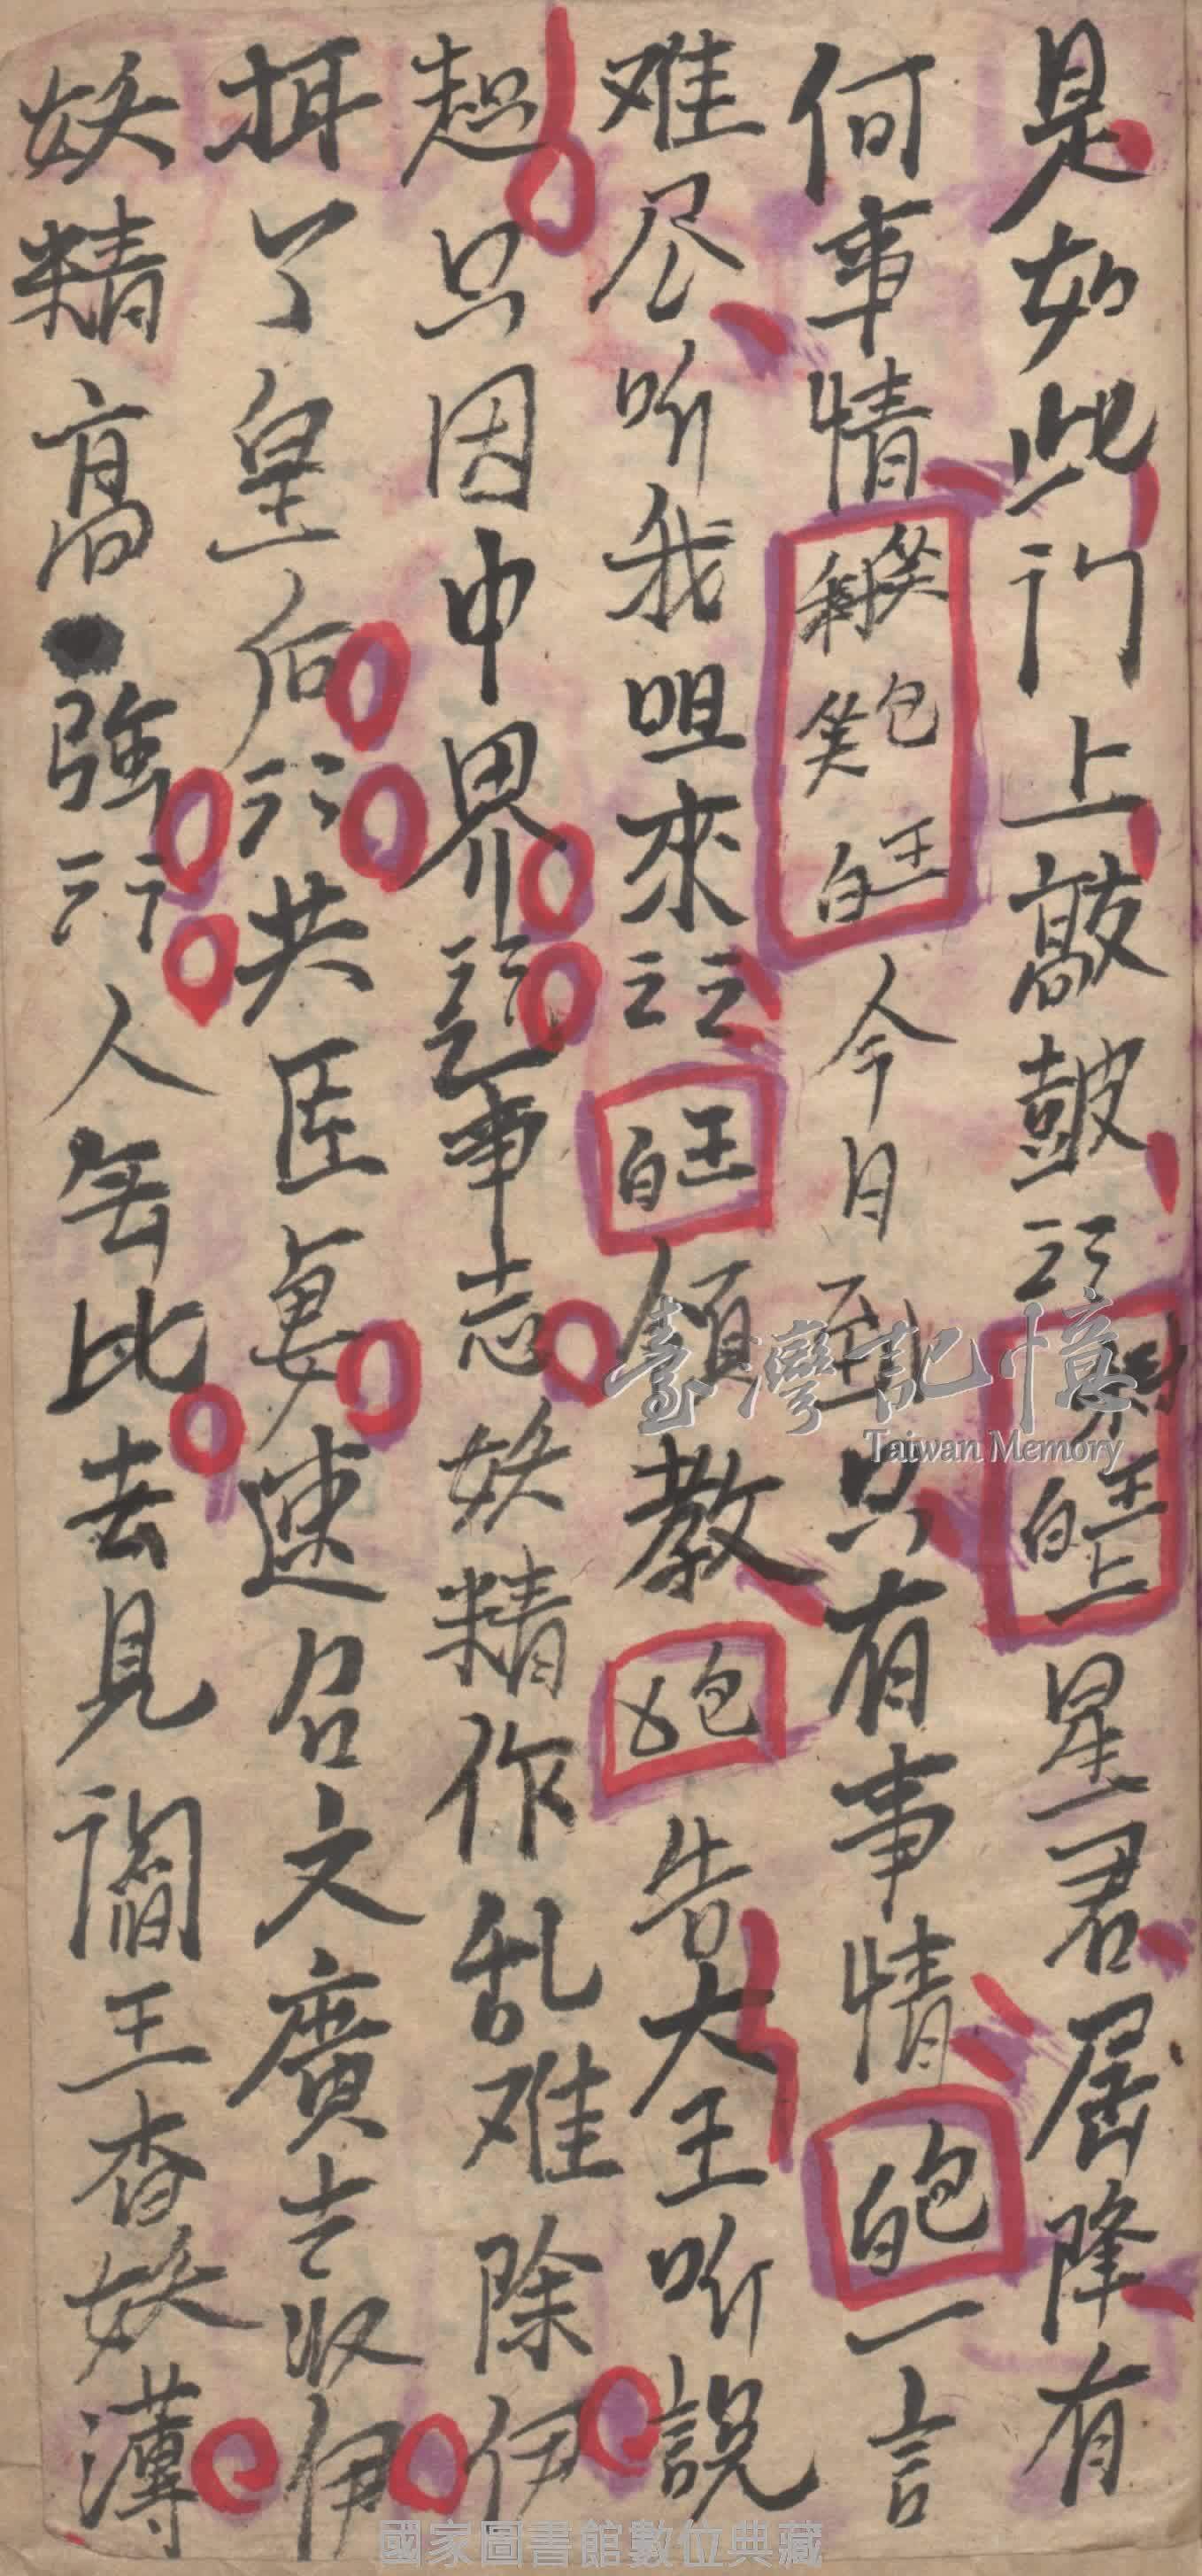 是如此门上敲皷〻〻王上白星君居降有
何事情笑包王科笑白今日到只有事情包白一言
难尽听我咀來〻〻王白領教包又告大王听説
起只因中界〻〻乞事志妖精作乱难除伊
抯了皇后〻〻共臣妻速召文廣去收伊
妖精高強〻〻人無比去見閻王查妖薄
臺灣記憶
Taiwan Memory
國家圖書館數位典藏